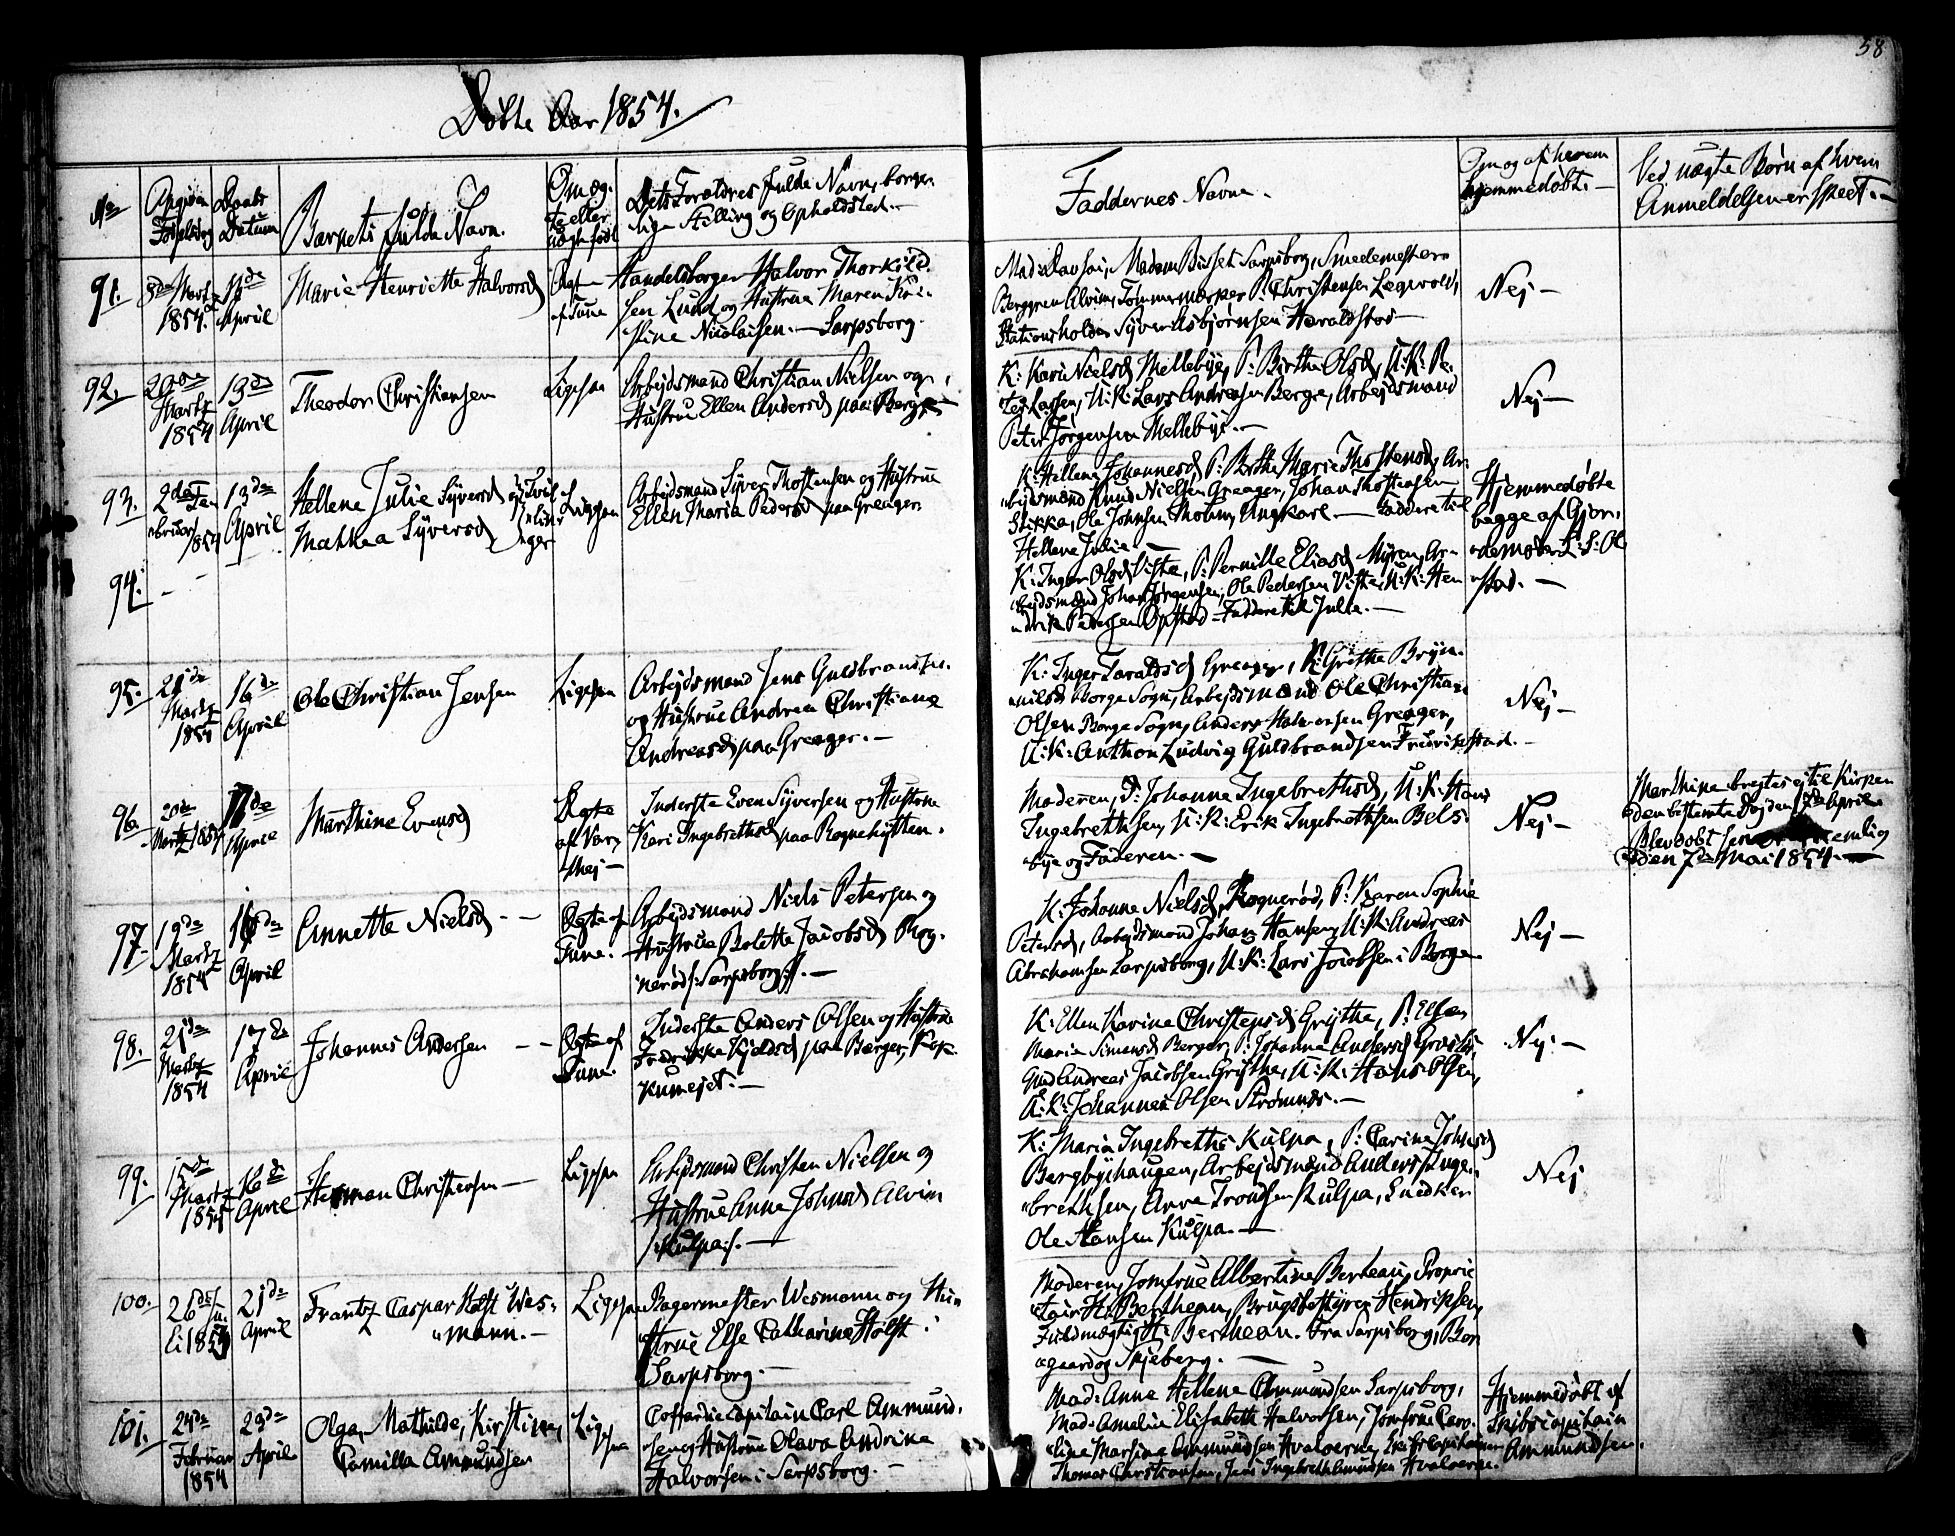 58
Døbte Aar 1854.
No
Angiven Fødselsdag
Daabs Datum
Barnets fulde Navn.
Om ægte eller uægte født
Dets Forældres fulde Navn, borger-
lige Stilling og Opholdsted.
Faddernes Navne.
Om og af hvem
hjemmedøbt.
Ved uægte Børn af hvem
Anmeldelsen er skeet.
91.
Martz
1854.
April
Marie Henriette Halvorsd
Ægt
af Tune
Handelsborger Halvor Thorkild-
sen Lund og Hustrue Maren Kri-
stine Nicolaisen. Sarpsborg.
Madam Bisseth Sarpsborg, Smedemester
Berggren Alvim, Tømmermærker P: Christensen
Stationsholder Syver Asbjørnsen Haraldstad
Nej
92.
20de
Martz
1854
13de
April
Theodor Christiansen
Ligesaa
Arbejdsmand Christian Nielsen og
Hustrue Ellen Andersd paa Berge
K: Kari Nielsd Mellebye, P: Birthe Olsd, U:K: Pe-
ter Larsen, U:K: Lars Andreasen Berge, Arbejdsmand
Peter Jørgensen Mellebye.
Nej
93.
2den Fe-
bruar
1854
13de
April
Hellene Julie Syversd og
Mathea Syversd
Tvil-
linger
Ligesaa
Arbejdsmand Syver Thostensen og Hustrue
Ellen Maria Pedersd paa Greager.
K: Hellene Johannesd, P: Birthe Marie Thostensd, Ar-
bejdsmand Knud Nielsen Greager, Johan Thostensen
Ole Johnsen Ungkarl Faddere til
Hellene Julie
K: Inger Olsd Viste, P: Pernille Eliasd Myren, Ar-
bejdsmand Johan Jørgensen, Ole Pedersen Viste, U:K: Hen-
drik Pedersen Opstad Faddere til
Hjemmedøbte
begge af Gjor-
demoder
94.
95.
Martz
1854
16de
April
Ole Christian Jensen
Ligesaa
Arbejdsmand Jens Guldbrandsen
og Hustrue Andrea Christiane
Andreasd paa Greager.
K: Inger Taraldsd Greager, P: Grethe Bryn-
nilsd Borge Sogn, Arbejdsmænd Ole Christian
Olsen Borge Sogn, Anders Halvorsen Greager,
U:K: Anthon Ludvig Guldbrandsen Fredrikstad.
Nej
96.
20de
Martz 1854
7de
April
Marthine Evensd
Ægte
af Var-
Inderste Even Syversen og Hustrue
Kari Ingebrethsd paa Roknehytten.
Moderen, P: Johanne Ingebrethsd, U:K: Hans
Ingebrethsen, U:K: Erik Ingebrethsen Bels-
bye og Faderen.
Nej
Marthine bragtes ej til Kirken
den bestemte Dag den April
Blev døbt senere nemlig
den 7de Mai 1854.
97.
19de
Martz
1854
16de
April
Annette Nielsd
Ægte af
Tune.
Arbejdsmand Niels Petersen og
Hustrue Bolette Jacobsd Rog-
nerød /: Sarpsborg :/.
K: Johanne Nielsd, Rognerød, P: Karen Sophie
Petersd, Arbejdsmand Johan Hansen, U:K: Andreas
Abrahamsen Sarpsborg, U:K: Lars Jacobsen i Borge
Nej
98.
21de
Martz
1854
17de
April
Johannes Andersen
Ægte af
Tune.
Inderste Anders Olsen og Hustrue
Fredrikke Kjeldsd paa Berger,
K: Ellen Karine Christensd Grythe, P: Ellen
Maria Simensd Berger, P: Johanna Andersd
Gmd Andreas Jacobsen Grythe, U:K: Hans Olsen,
U:K: Johannes Olsen Strømnes.
Nej
99.
15de
Martz
1854
18de
April
Herman Christensen
Ligesaa
Arbejdsmand Christen Nielsen og
Hustrue Anne Johnsd Alvim
/: Kulpa :/.
K: Maria Ingebreths Kulpa, P: Carine Johnsd
Bergbyhaugen, Arbejdsmænd Anders Inge-
brethsen, Arve Trondsen Kulpa, Snedker
Ole Hansen Kulpa.
Nej
100.
26de Ju-
li 1853
21de
April
Frantz Caspar Holst Wes-
mann.
Ligesaa
Bagermester Wesmann og Hu-
strue Else Catharine Holst
Sarpsborg.
Moderen, Jomfrue Albertine Bertheau, Proprie-
tair H: Bertheau, Brugsbestyrer Hendriksen,
Fuldmægtig H: Bertheau. Fra Sarpsborg, Bor-
gaard og Skjeberg.
101.
24de
Februar
1854
23de
April
Olga, Mathilde, Kirstine,
Camilla Ammundsen
Ligesaa
Coffardiecapitain Carl Ammund-
sen og Hustrue Olava Andrine
Halvorsen i Sarpsborg.
Mad: Anne Hellene Ammundsen Sarpsborg,
Mad: Amalia Elisabeth Halvorsen, Jomfrue Caro-
line Marsine Ammundsen Hvaløerne, Skibscapitainer
Thomas Christiansen, Jens Ingebreth Amundsen Hvaløerne.
Hjemmedøbt af
Skibscapitain
Ammundsen.